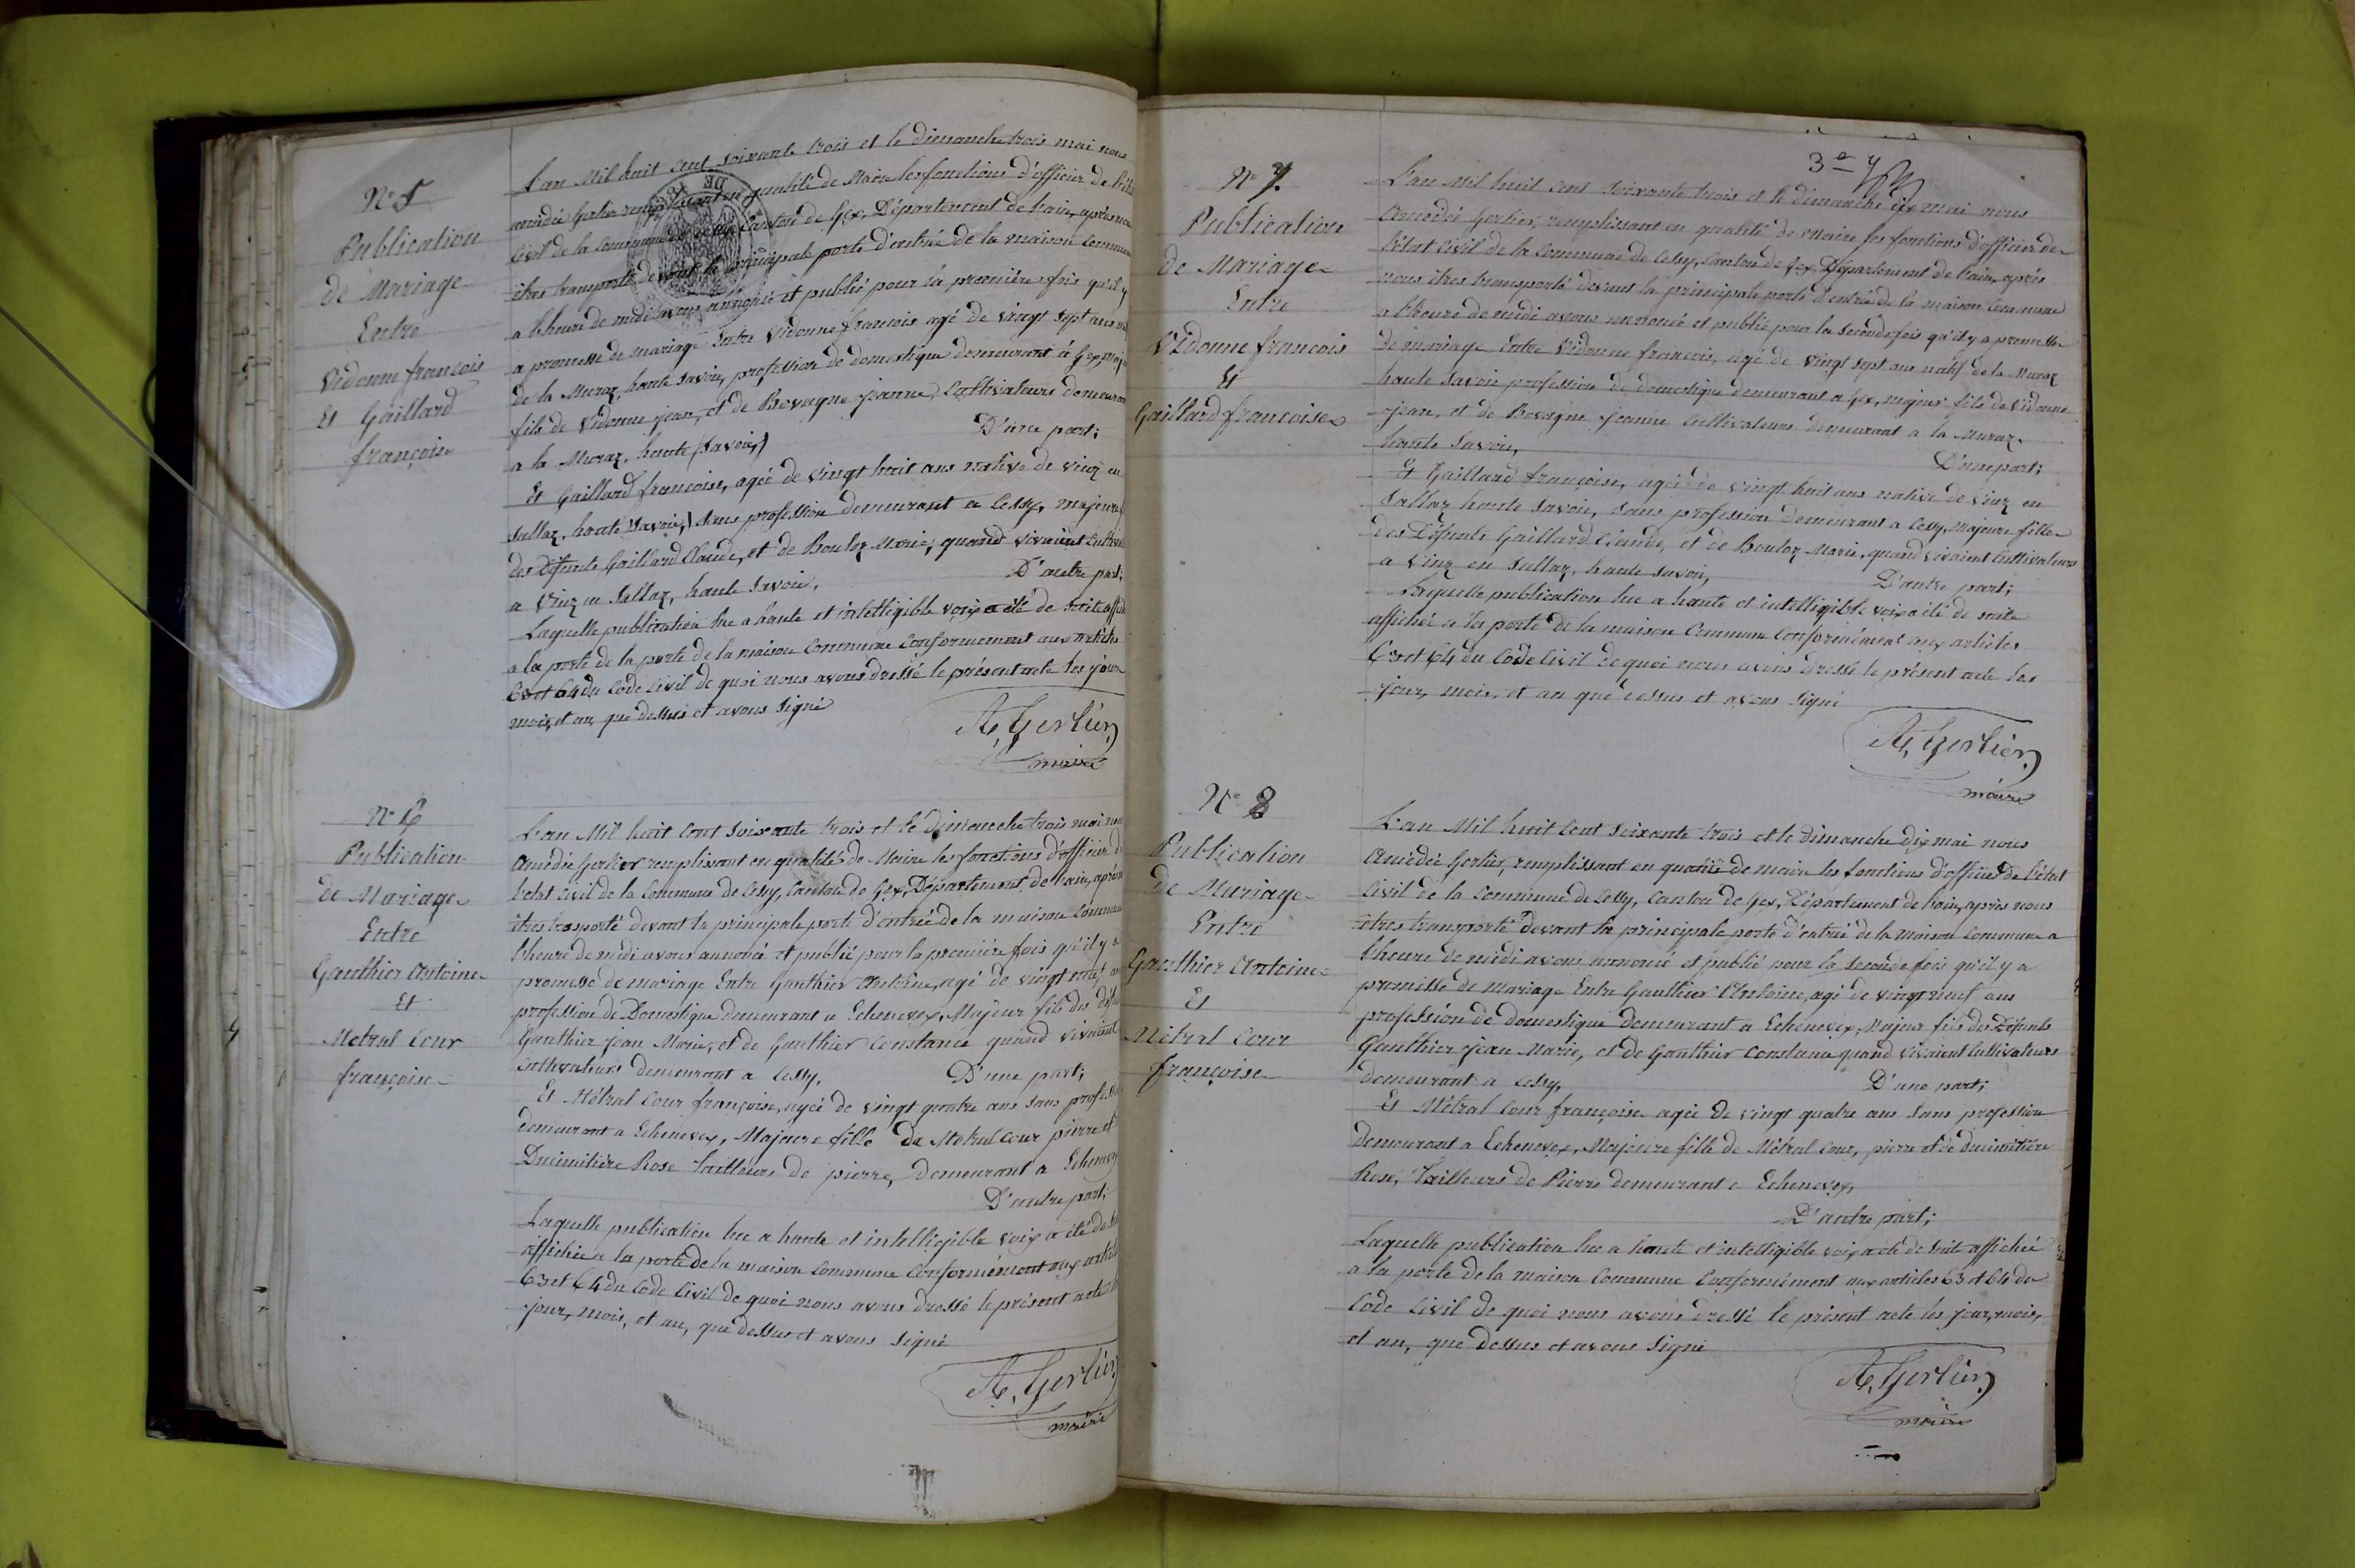 N° 5
Publication
de Mariage
Entre
Vidonne françois
Et Gaillard
françoise
L'an Mil huit cent soixante trois et le dimanche trois mai nous
amédée Gerlier remplissant en qualité de Maire les fonctions d'officier de l'état
Civil de la Commune de Cessy Canton de Gex, Département de l'ain, après nous
êtres transporté devant la principale porte d'entrée de la maison Commune
a l'heure de midi avons annoncé et publié pour la première fois qu'il y
a promesse de mariage Entre Vidonne françois agé de vingt sept ans
de la Muraz, haute Savoie, profession de domestique demeurant à Gex, maj
fils de Vidonne jean, et de Bovagne jeanne, Cultivateurs demeurant
a la Muraz, haute Savoie,
D'une part;
Et Gaillard françoise, agée de vingt huit ans native de Viuz en
Sallaz, haute Savoie, sans profession demeurant a Cessy, majeure
des Défunts Gaillard Claude, et de Bouloz Marie, quand vivaient Cultiv
a Viuz en Sallaz, haute Savoie,
D'autre part;
Laquelle publication lue a haute et intelligible voix a été de suite affich
a la porte de la porte de la maison Commune Conformement aux articles
63 et 64 du Code Civil de quoi nous avons dressé le présent acte les jour
mois, et an, que dessus et avons Signé
A, Gerlier,
maire
N° 6
Publication
de Mariage
Entre
Gauthier Antoine
Et
Métral Cour
françoise
L'an Mil huit Cent Soixante trois et le Dimanche trois mai nous
Amédée Gerlier remplissant en qualité de Maire les fonctions d'officier d
l'état Civil de la Commune de Cessy, Canton de Gex, Département, de l'ain, après
êtres trasporté devant la principale porte d'entrée de la maison Commune
l'heure de midi avons annoncé et publié pour la première fois qu'il y a
promesse de mariage Entre Gauthier Antoine, agé de vingt neuf an
profession de Domestique demeurant a Echenevex, Majeur fils des défun
Gauthier jean Marie, et de Gauthier Constance quand vivaient
Cultivateurs demeurant a Cessy,
D'une part;
Et Métral Cour françoise, agée de vingt quatre ans Sans profession
demeurant a Echenevex, Majeure fille de Métral Cour pierre et
Ducimitière Rose tailleurs de pierre, demeurant a Echenevex
D'autre part;
Laquelle publication lue a haute et intelligible voix a été de
affichée a la porte de la maison Commune Conformément aux articl
63 et 64 du Code Civil de quoi nous avons dressé le présent acte
jour, mois, et an, que dessus et avons signé
A, Gerlier,
maire
3e
N° 7.
Publication
de Mariage
Entre
Vidonne francois
Et
Gaillard francoise
L'an Mil huit cent soixante trois et le dimanche dix mai nous
Amédée Gerlier, remplissant en qualité de Maire les fonctions d'officier de
l'état Civil de la Commune de Cessy, Canton de Gex, Département de l'ain, après
nous êtres transporté devant la principale porte d'entrée de la maison Commune
a l'heure de midi avons annoncé et publié pour la seconde fois qu'il y a promesse
de mariage Entre Vidonne francois, agé de vingt sept ans natif de la Muraz
haute Savoie profession de domestique demeurant a Gex, majeur fils de Vidonne
jean, et de Bovagne jeanne Cultivateurs demeurant a la Muraz
haute Savoie,
D'une part;
Et Gaillard françoise, agée de vingt huit ans native de Viuz en
Sallaz haute Savoie, sans profession demeurant a Cessy, Majeure fille
des Défunts Gaillard Claude, et de Bouloz Marie, quand vivaient Cultivateurs
a Viuz en Sallaz, haute Savoie,
D'autre part;
Laquelle publication lue a haute et intelligible voix a été de suite
affichée à la porte de la maison Commune Conformément aux articles
63 et 64 du Code Civil de quoi nous avons dressé le présent acte les
jour, mois, et an que dessus et avons Signé
A, Gerlier,
maire
N° 8
Publication
de Mariage
Entre
Gauthier Antoine
Et
Métral Cour
françoise
L'an Mil huit Cent soixante trois et le Dimanche dix mai nous
Amédée Gerlier, remplissant en qualité de maire les fonctions d'officier de l'état
Civil de la Commune de Cessy, Canton de Gex, Département de l'ain, après nous
êtres transporté devant la principale porte d'entrée de la maison Commune a
l'heure de midi avons annoncé et publié pour la Seconde fois qu'il y a
promesse de mariage Entre Gauthier Antoine, agé de vingt neuf ans
profession de domestique demeurant a Echenevex, Majeur fils des Défunts
Gauthier jean Marie, et de Gauthier Constance quand vivaient Cultivateurs
demeurant a Cessy,
D'une part;
Et Métral Cour françoise agée de vingt quatre ans Sans profession
demeurant a Echenevex, Majeure fille de Métral Cour, pierre et de Ducimitière
Rose, Tailleurs de Pierre demeurant a Echenevex,
D'autre part;
Laquelle publication lue a haute et intelligible voix a été de suite affichée
a la porte de la maison Commune Conformément aux articles 63 et 64 du
Code Civil de quoi nous avons dressé le présent acte les jour, mois,
et an, que dessus et avons Signé
A, Gerlier,
maire